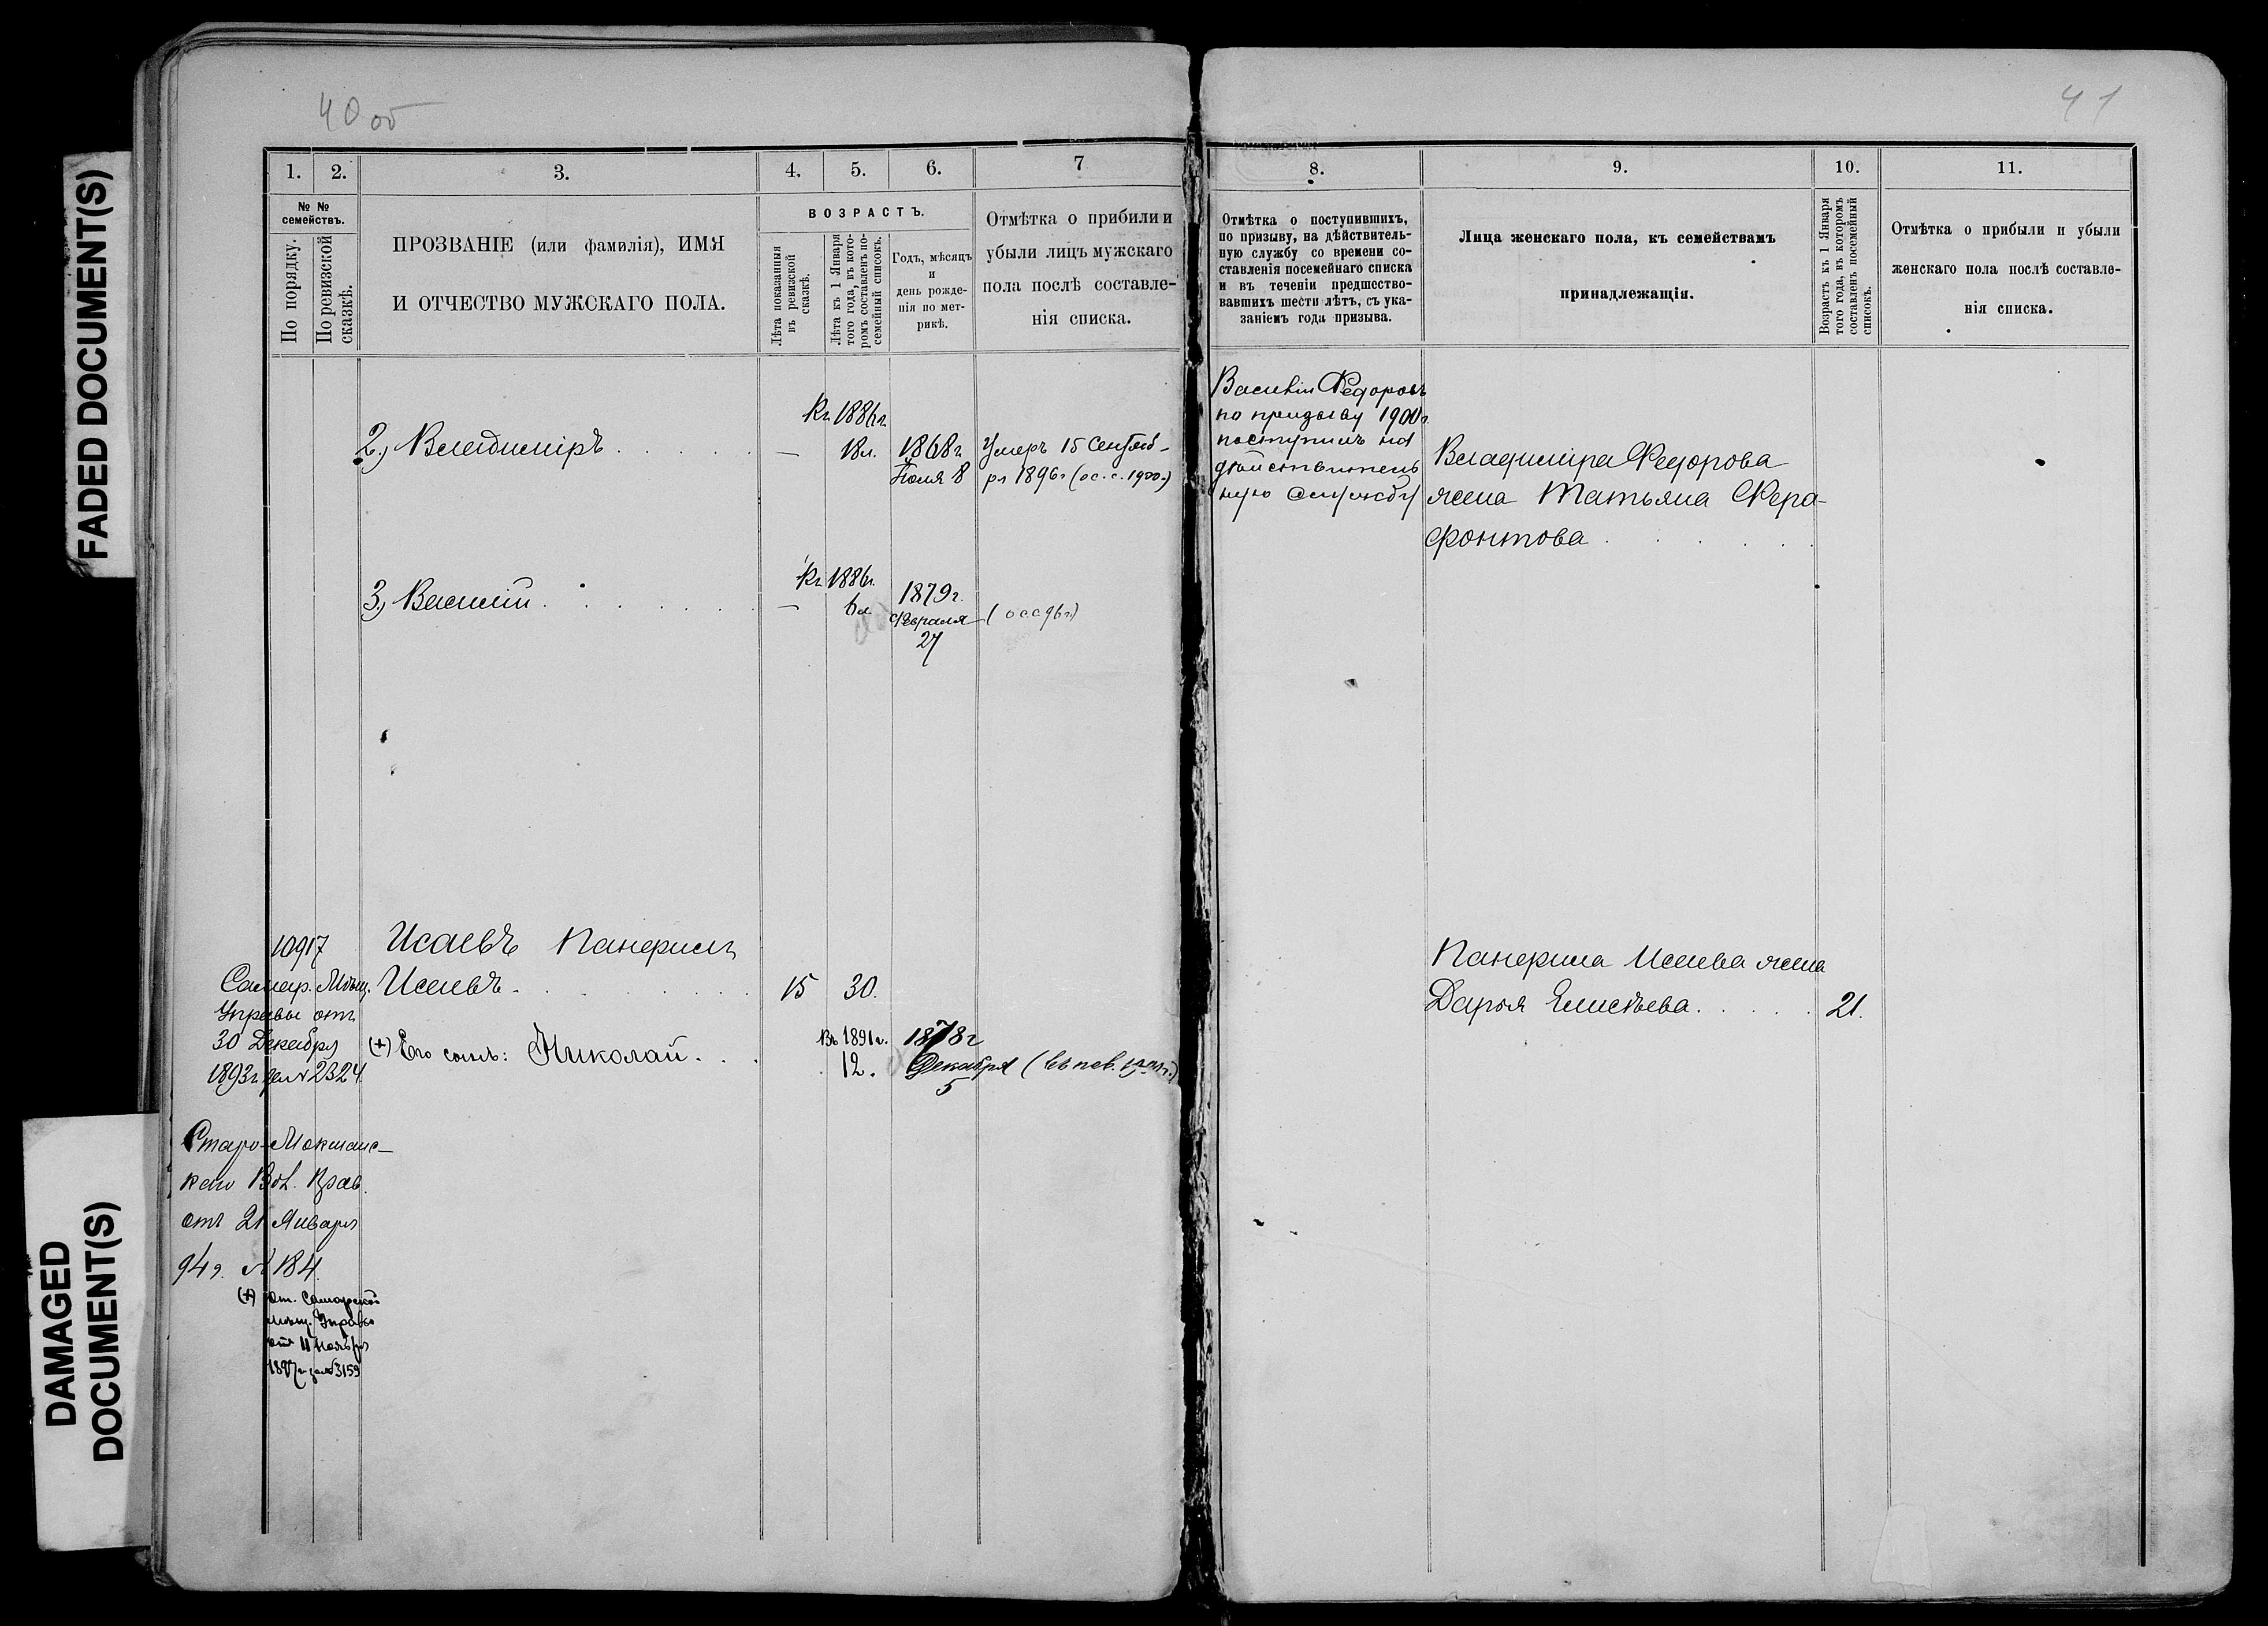 FADED DOCUMENT(S)
DAMAGED
DOCUMENT(S)
40 об
1. 2. 3. 4. 5. 6. 7
№ №
семействъ.
По порядку.
По ревизской
сказкѣ.
ПРОЗВАНІЕ (или фамилія), ИМЯ
И ОТЧЕСТВО МУЖСКАГО ПОЛА.
ВОЗРАСТЪ.
Лѣта показанныя
въ ревизской
сказкѣ.
Лѣта къ 1 Января
того года, въ кото-
ромъ составленъ по-
семейный списокъ.
Годъ, мѣсяцъ
и
день рожде-
нія по мет-
рикѣ.
Отмѣтка о прибыли и
убыли лицъ мужскаго
пола послѣ составле-
нія списка.
Къ 1886 г.
2.) Владиміръ — 18 л. 1868 г. Умеръ 15 Сентяб-
Іюля 8 ря 1896 г (ос. с. 1900.)
Къ 1886 г.
3.) Василій — 6 л. 1879 г.
Февраля (осс 96 г.)
27
10917 Исаевъ Панфилъ
Самар. Мѣщ. Исаевъ 15 30.
Управы отъ
30 Декабря (+) Его сынъ: Николай Въ 1891 г. 1878 г
1893 г. за № 2324 12. Декабря
5
Старо-Мокшанс-
каго Вол. Прав.
отъ 21 Января
94 г. № 184.
(+) От. Самарской
Мѣщ. Управы
отъ 11 Ноября
1897 г за № 3159
41
8. 9. 10. 11.
Отмѣтка о поступившихъ,
по призыву, на дѣйствитель-
ную службу со времени со-
ставленія посемейнаго списка
и въ теченіи предшество-
вавшихъ шести лѣтъ, съ ука-
заніемъ года призыва.
Лица женскаго пола, къ семействамъ
принадлежащія.
Возрастъ къ 1 Января
того года, въ которомъ
составленъ посемейный
списокъ.
Отмѣтка о прибыли и убыли
женскаго пола послѣ составле-
нія списка.
Василій Федоровъ
по призыву 1900 г
поступилъ на
дѣйствитель
ную службу
Владиміра Федорова
жена Татьяна Фера-
фонтова
Панфила Исаева жена
Дарья Елисѣева 21.